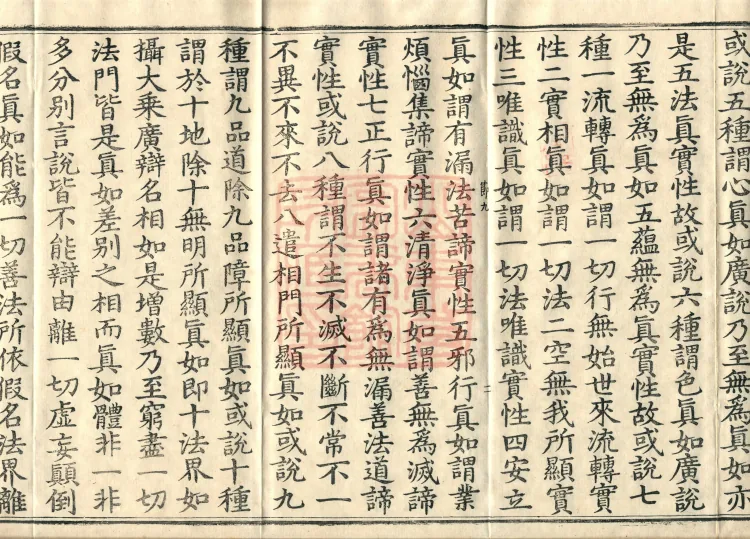 或說五種謂心眞如廣說乃至無爲眞如亦
是五法眞實性故或說六種謂色眞如廣說
乃至無爲眞如五蘊無爲眞實性故或說七
種一流轉眞如謂一切行無始世來流轉實
性二實相眞如謂一切法二空無我所顯實
性三唯識眞如謂一切法唯識實性四安立
眞如謂有漏法苦諦實性五邪行眞如謂業
煩惱集諦實性六清淨眞如謂善無爲滅諦
實性七正行眞如謂諸有爲無漏善法道諦
實性或說八種謂不生不滅不斷不常不一
不異不來不去八遣相門所顯眞如或說九
種謂九品道除九品障所顯眞如或說十種
謂於十地除十無明所顯眞如即十法界如
攝大乘廣辯名相如是增數乃至窮盡一切
法門皆是眞如差別之相而眞如體非一非
多分別言說皆不能辯由離一切虛妄顚倒
假名眞如能爲一切善法所依假名法界離